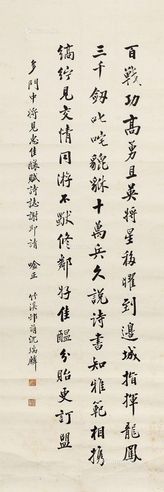 百戰功高勇且英將星移曜到邊城指揮龍鳳
三千劍叱咤貔貅十萬兵久說詩書知雅範相攜
縞紵見交情同游不厭脩鄰好佳醞分貽更訂盟
多門中将見惠佳釀賦詩誌謝即請 正 竹溪邨 沈瑞麟